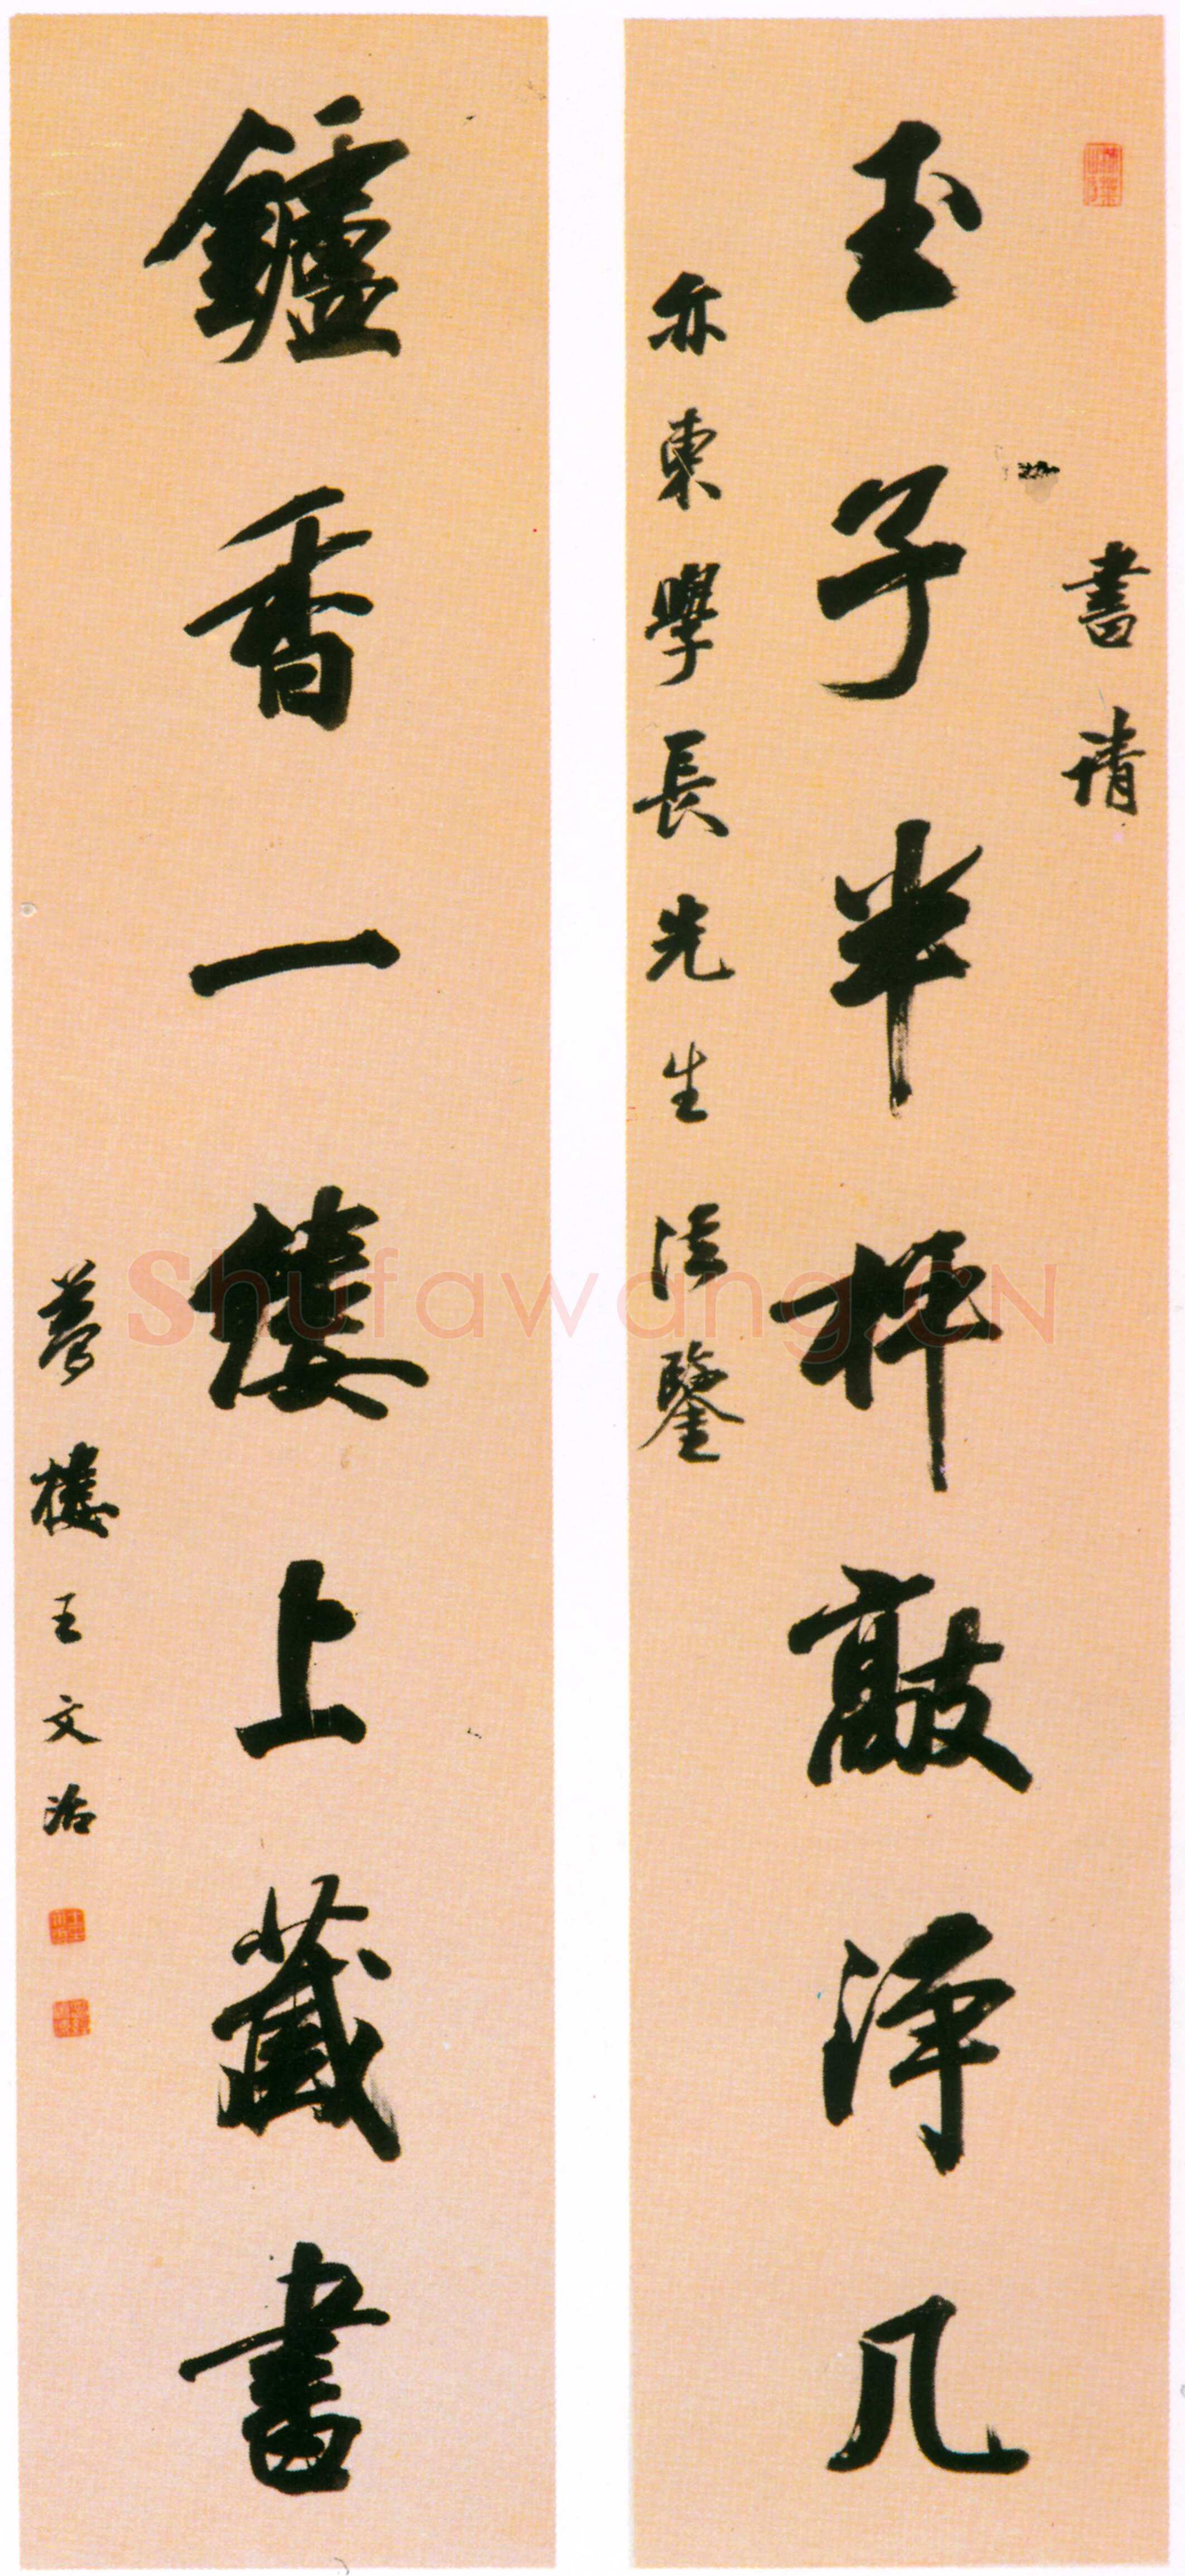 書請
玉子半枰敲淨几
亦東學長先生法鑒
鑪香一縷上藏書
夢樓王文治
Shufawang.CN